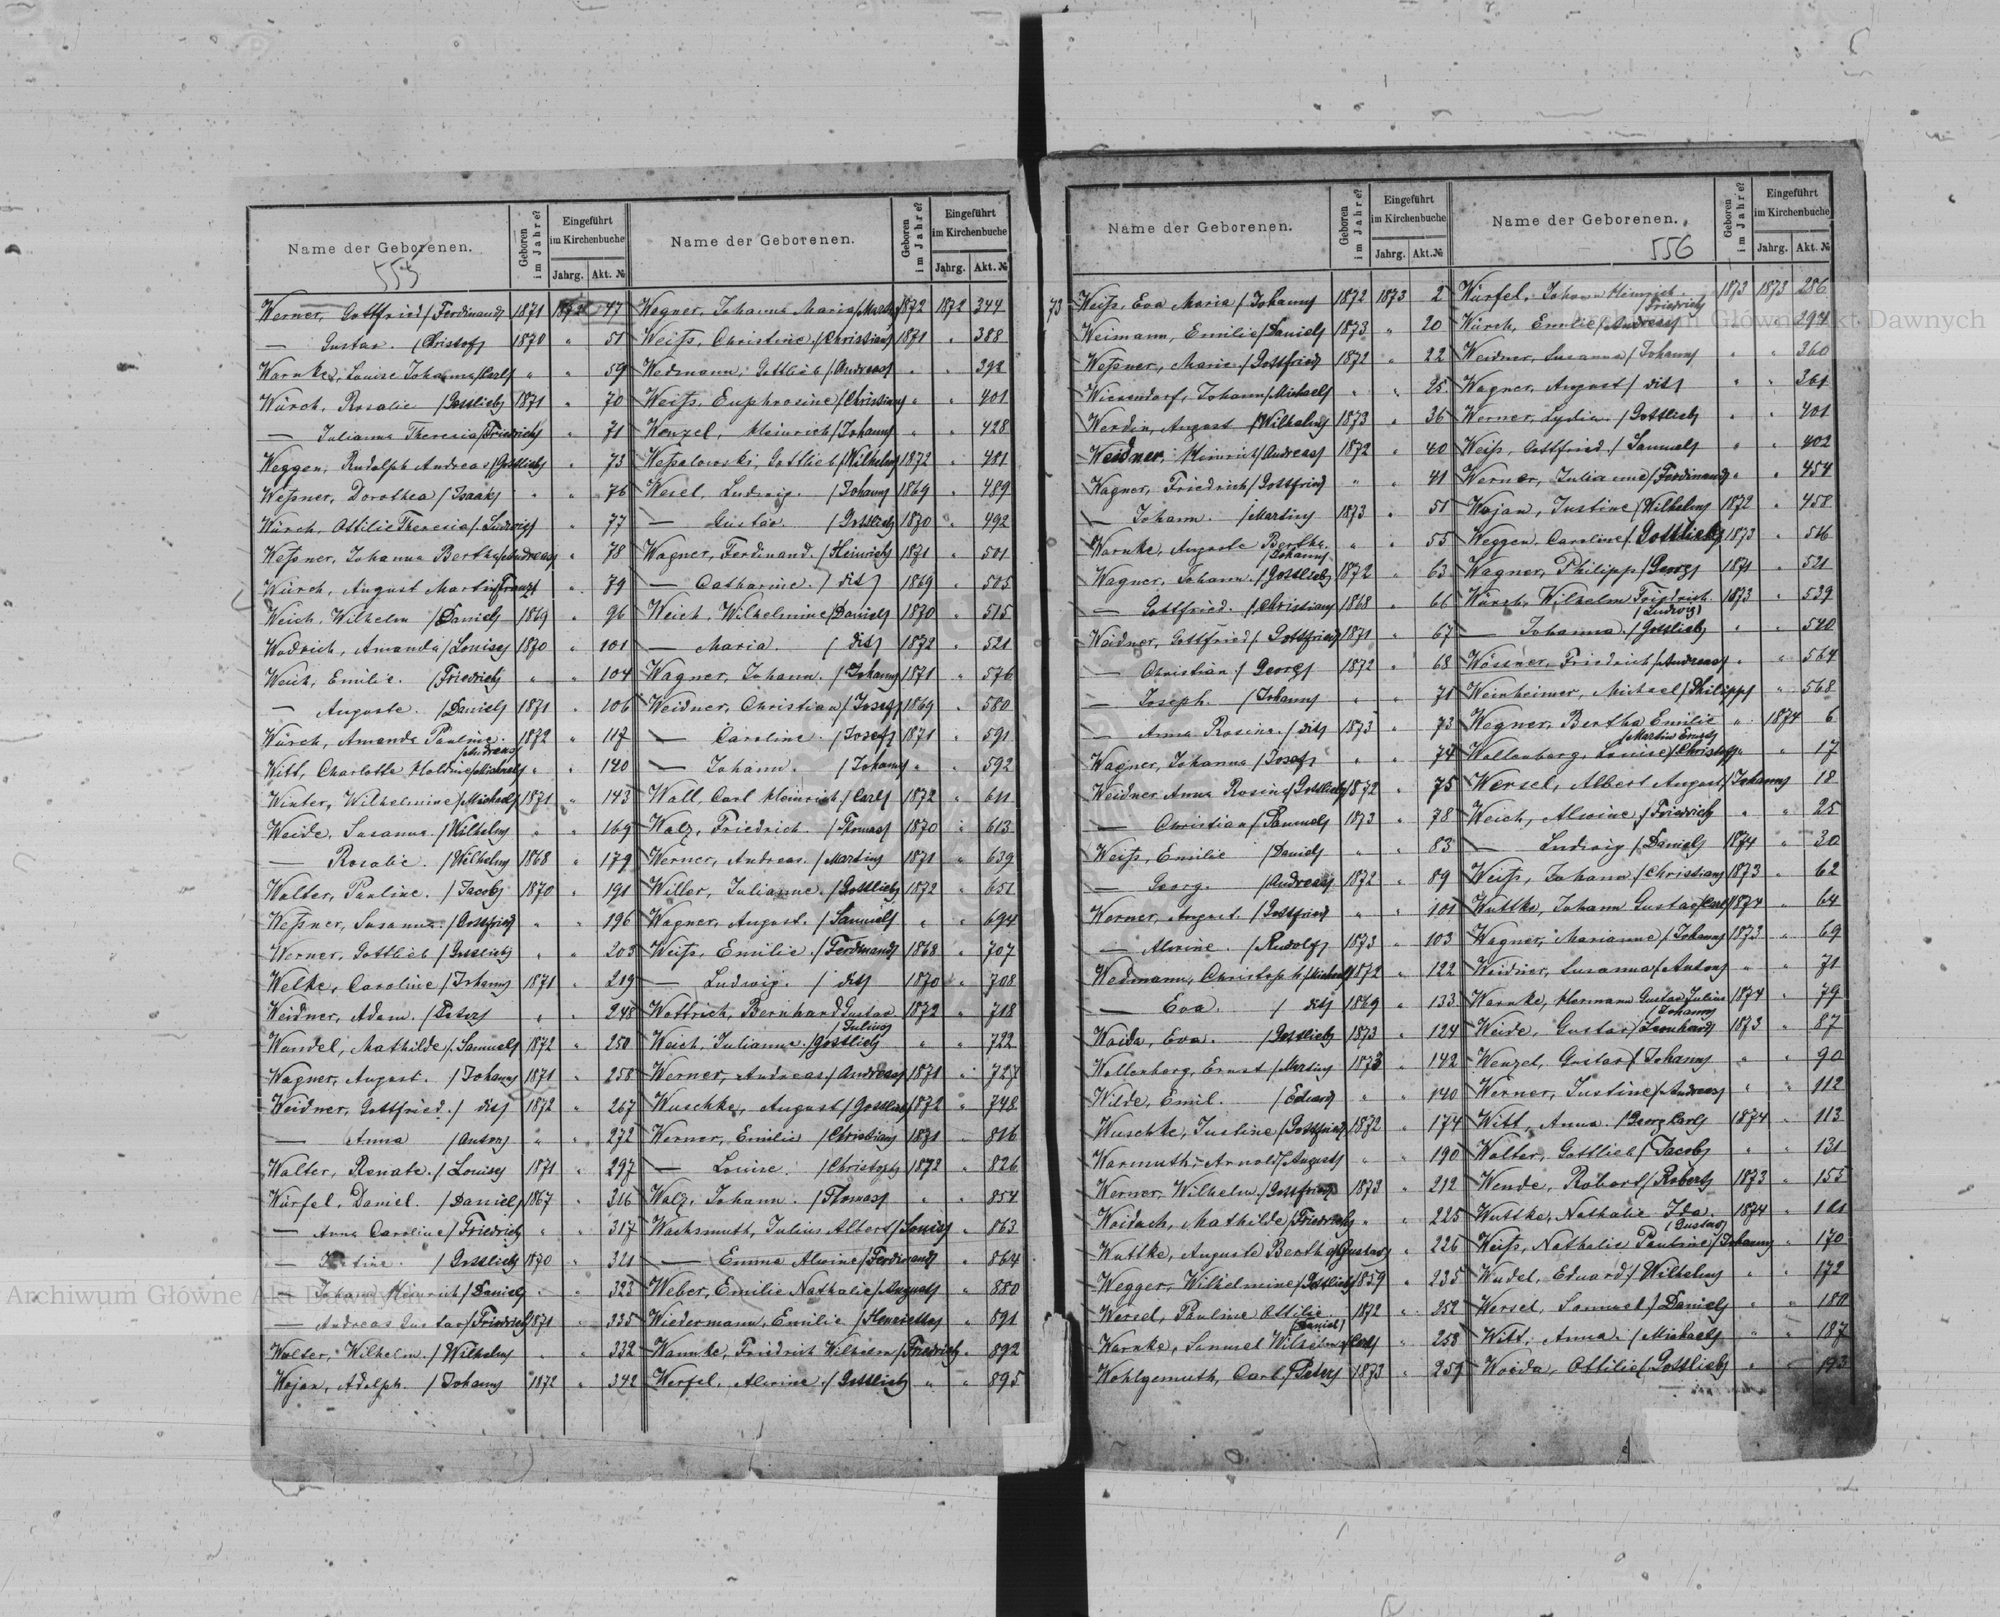 Name der Geborenen.
Geboren im Jahre?
Eingeführt im Kirchenbuche
Jahrg. Akt. №
Werner, Gottfried (Ferdinand) 1871 47
— Gustav. (Christof) 1870 " 51
Warnke, Louise Johanna (Carl) " " 59
Würch, Rosalie (Gottlieb) 1871 " 70
— Julianna Theresia (Friedrich) " 71
Weggen, Rudolph Andreas (Gottlieb) " 73
Weßner, Dorothea (Isaak) " " 76
Würch, Ottilie Theresia (Ludwig) " 77
Weßner, Johanna Bertha (Andreas) " 78
Würch, August Martin (Franz) " 79
Weich, Wilhelm (Daniel) 1869 " 96
Wodrich, Amanda (Louise) 1870 " 101
Weich, Emilie. (Friedrich) " " 104
— Auguste. (Daniel) 1871 " 106
Würch, Amanda Pauline. (Andreas) 1872 " 117
Witt, Charlotte (Michael) " " 140
Winter, Wilhelmine (Michael) 1871 " 143
Weide, Susanna (Wilhelm) " " 169
— Rosalie. (Wilhelm) 1868 " 179
Walter, Pauline. (Jacob) 1870 " 191
Weßner, Susanna. (Gottfried) " " 196
Werner, Gottlieb (Gottlieb) " " 203
Welke, Caroline (Johann) 1871 " 219
Weidner, Adam. (Peter) " " 248
Wandel, Mathilde (Samuel) 1872 " 250
Wagner, August. (Johann) 1871 " 258
Weidner, Gottfried. (dit) 1872 " 267
— Anna (Anton) " " 272
Walter, Renate. (Louise) 1871 " 297
Würfel, Daniel. (Daniel) 1867 " 316
— Anna Caroline (Friedrich) " " 317
— (Gottlieb) 1870 " 321
— Johann Heinrich (Daniel) " " 323
— Andreas Gustav (Friedrich) 1871 " 325
Walter, Wilhelm. (Wilhelm) " " 332
Wojan, Adolph. (Johann) 1872 " 342
Name der Geborenen.
Geboren im Jahre?
Eingeführt im Kirchenbuche
Jahrg. Akt. №
Wegner, Johanna Maria 1872 1872 344
Weiß, Christine (Christian) 1871 " 388
Wedmann, Gottlieb (Andreas) " " 392
Weiß, Euphrosine (Christian) " " 401
Wenzel, Heinrich (Johann) " " 428
Weßalowski, Gottlieb (Wilhelm) 1872 " 481
Wesel, Ludwig. (Johann) 1869 " 489
— Gustav. (Gottlieb) 1870 " 492
Wagner, Ferdinand. (Heinrich) 1871 " 501
— Catharine. (dit) 1869 " 505
Weich, Wilhelmine (Daniel) 1870 " 515
— Maria. (dit) 1872 " 521
Wagner, Johann. (Johann) 1871 " 576
Weidner, Christian (Josef) 1869 " 580
— Caroline. (Josef) 1871 " 591
— Johann. (Johann) " " 592
Wall, Carl Heinrich (Carl) 1872 " 611
Walz, Friedrich. (Thomas) 1870 " 613
Werner, Andreas. (Martin) 1871 " 639
Willer, Julianne. (Gottlieb) 1872 " 651
Wagner, August. (Samuel) " " 694
Weiß, Emilie. (Ferdinand) 1868 " 707
— Ludwig. (dit) 1870 " 708
Wottrich, Bernhard Gustav (Julius) 1872 " 718
Weich, Julianna. (Gottlieb) " " 722
Werner, Andreas (Andreas) 1871 " 727
Wuschke, August (Gottlieb) 1872 " 748
Werner, Emilie (Christian) 1871 " 816
— Louise. (Christoph) 1872 " 826
Walz, Johann. (Thomas) " " 854
Wachsmuth, Julius Albert (Louis) " 863
— Emma Alwine (Ferdinand) " 864
Weber, Emilie Nathalie (August) " 880
Wiedermann, Emilie (Henriette) " 891
Warnke, Friedrich Wilhelm (Friedrich) " 892
Werfel, Alwine. (Gottlieb) " " 895
Name der Geborenen.
Geboren im Jahre?
Eingeführt im Kirchenbuche
Jahrg. Akt. №
73 Weiß, Eva Maria (Johann) 1872 1873 2
Weimann, Emilie (Daniel) 1873 " 20
Weßner, Marie. (Gottfried) 1872 " 22
Wiesendorf, Johann (Michael) " " 25
Werdin, August (Wilhelm) 1873 " 36
Weidner, Heinrich (Andreas) 1872 " 40
Wagner, Friedrich (Gottfried) " " 41
— Johann. (Martin) 1873 " 51
Warnke, Auguste Bertha. (Johann) " " 55
Wagner, Johann. (Gottlieb) 1872 " 63
— Gottfried. (Christian) 1868 " 66
Weidner, Gottfried (Gottfried) 1871 " 67
— Christian (Georg) 1872 " 68
— Joseph. (Johann) " " 71
— Anna Rosina. (dit) 1873 " 73
Wagner, Johanna (Josef) " " 74
Weidner Anna Rosine (Gottlieb) 1872 " 75
— Christian (Samuel) 1873 " 78
Weiß, Emilie (Daniel) " " 83
— Georg. (Andreas) 1872 " 89
Werner, August. (Gottfried) " " 101
— Alwine. (Rudolf) 1873 " 103
Wedmann, Christoph (Michael) 1872 " 122
— Eva. (dit) 1869 " 133
Woida, Eva. (Gottlieb) 1873 " 124
Wollenberg, Ernst (Martin) 1873 " 142
Wilde, Emil. (Eduard) " " 140
Wuschke, Justine (Gottfried) 1872 " 174
Warmuth, Arnold (August) " " 190
Werner, Wilhelm. (Gottfried) 1873 " 212
Woidach, Mathilde (Friedrich) " " 225
Wuttke, Auguste Bertha (Gustav) " 226
Wegger, Wilhelmine (Gottlieb) 1859 " 235
Wersel, Pauline Ottilie. (Daniel) 1872 " 252
Warnke, Samuel Wilhelm (Carl) " 258
Wohlgemuth, Carl. (Peter) 1873 " 259
Name der Geborenen.
556
Geboren im Jahre?
Eingeführt im Kirchenbuche
Jahrg. Akt. №
Würfel, Johann Heinrich. (Friedrich) 1873 1873 286
Würch, Emilie (Andreas) " " 294
Weidner, Susanna (Johann) " " 360
Wagner, August (dit) " " 361
Werner, Lydia. (Gottlieb) " " 401
Weiß, Gottfried. (Samuel) " " 402
Werner, Julianne (Ferdinand) " " 454
Wojan, Justine (Wilhelm) 1872 " 458
Weggen, Caroline (Gottlieb) 1873 " 516
Wagner, Philipp (Georg) 1871 " 521
Würch, Wilhelm Friedrich. (Ludwig) 1873 " 539
— Johanna. (Gottlieb) " " 540
Wössner, Friedrich (Andreas) " " 564
Weinheimer, Michael (Philipp) " 568
Wegner, Bertha Emilie (Martin Ernst) " 1874 6
Wollenberg, Louise (Christof) " " 17
Wersel, Albert August (Johann) 18
Weich, Alwine (Friedrich) " " 25
— Ludwig (Daniel) 1874 " 30
Weiß, Johann (Christian) 1873 " 62
Wuttke, Johann Gustav (Carl) 1874 " 64
Wagner, Marianne (Johann) 1873 " 69
Weidner, Susanna (Anton) " " 71
Warnke, Hermann Gustav Julius (Johann) 1874 " 79
Weide, Gustav (Leonhard) 1873 " 87
Wenzel, Gustav (Johann) " " 90
Werner, Justine (Andreas) " " 112
Witt, Anna. (Georg Carl) 1874 " 113
Walter, Gottlieb (Jacob) " " 131
Wende, Robert (Robert) 1873 " 155
Wuttke, Nathalie Ida. (Gustav) 1874 "
Weiß, Nathalie Pauline (Johann) " 170
Wudel, Eduard (Wilhelm) " " 172
Wersel, Samuel (Daniel) " " 180
Witt, Anna. (Michael) " " 187
Woida, Ottilie (Gottlieb) " " 193
Archiwum Główne Akt Dawnych
Archiwum Główne Akt Dawnych